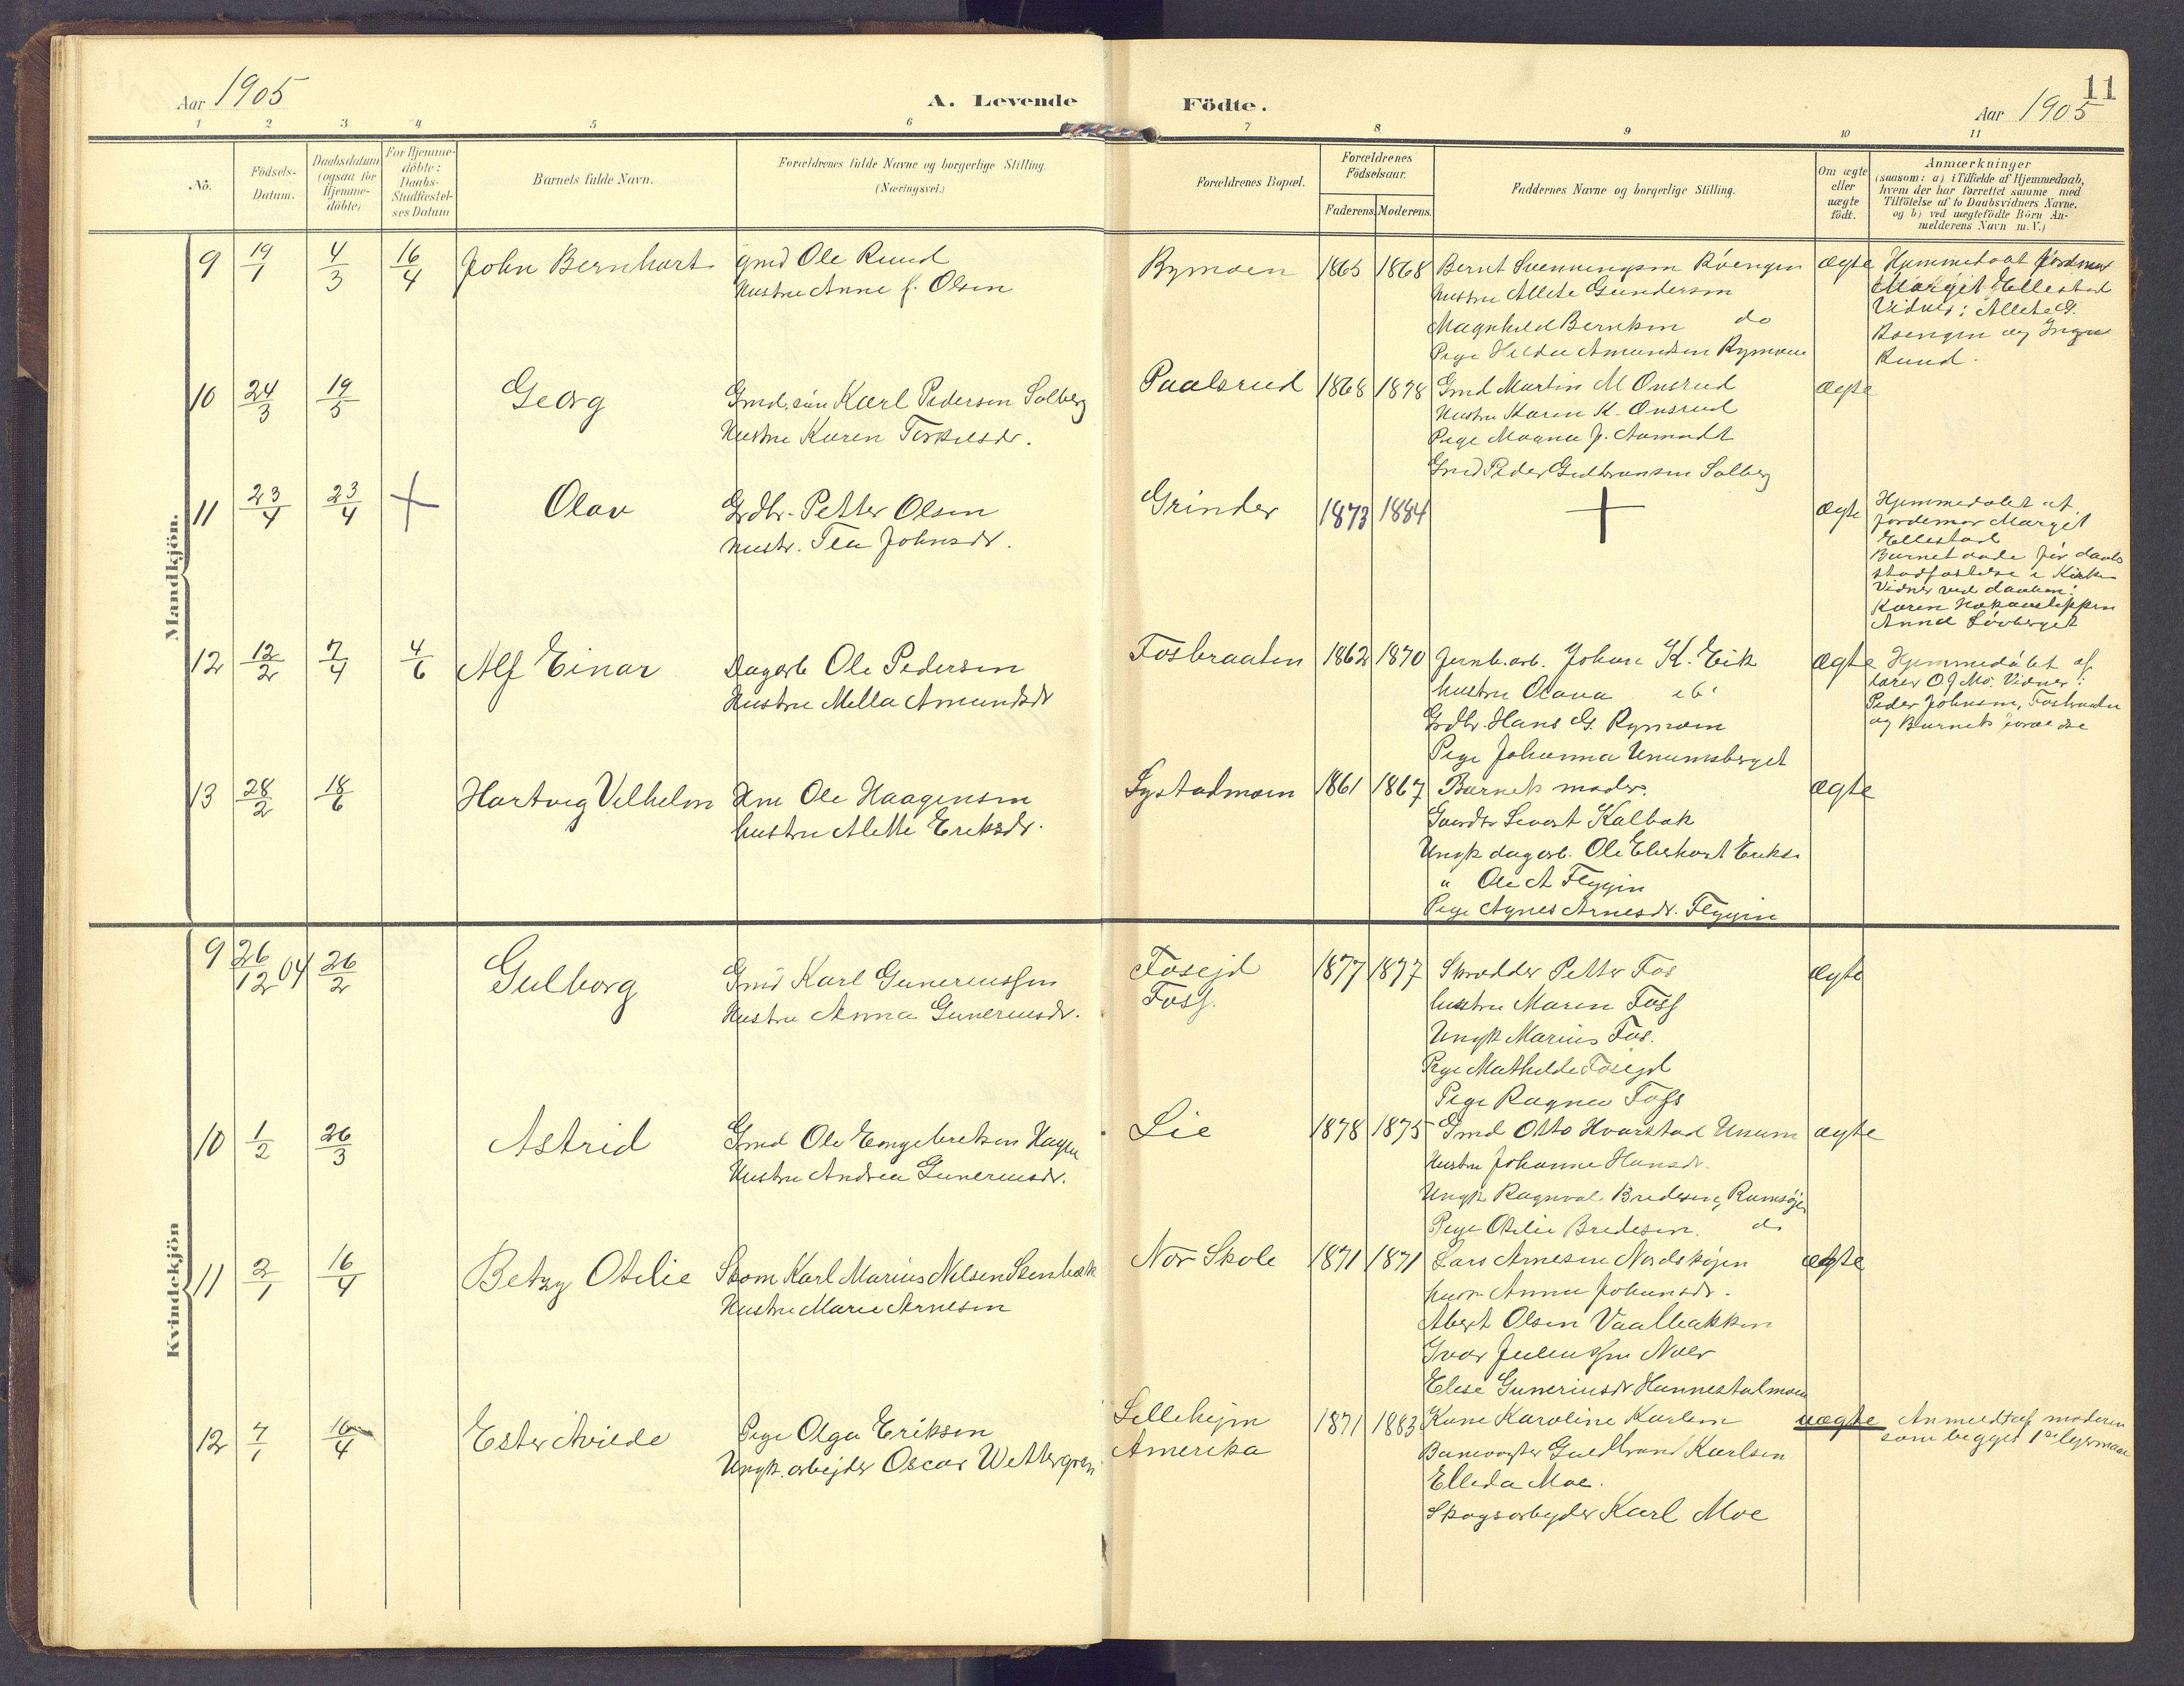 Aar 1905
A. Levende
Födte.
Aar 1905
11
1 2 3 4 5 6 7 8 9 10 11
No.
Födsels-
Datum.
Daabsdatum
(ogsaa for
Hjemme-
döbte)
For Hjemme-
döbte:
Daabs-
Stadfæstel-
ses Datum
Barnets fulde Navn.
Forældrenes fulde Navne og borgerlige Stilling.
(Næringsvei.)
Forældrenes Bopæl.
Forældrenes
Födselsaar.
Faderens. Moderens.
Faddernes Navne og borgerlige Stilling.
Om ægte
eller
uægte
födt.
Anmærkninger
(saasom: a) i Tilfælde af Hjemmedaab,
hvem der har forrettet samme med
Tilföielse af to Daabsvidners Navne,
og b) ved uægtefödte Börn An-
melderens Navn m. V.)
Mandkjön.
9 19/1 4/3 16/4 John Bernhart
gmd Ole Ruud
Hustru Anne J. Olsen
Rymoen 1865 1868
Bernt Svenningsen Röengen
hustru Allete Gundersen
Magnhild Berntsen do
Pige Hilda Amundsen Rymoen
ægte
Hjemmedöbt jordmor
Margit Ellestad
Vidner: Allete G.
Roengen og Inga
Ruud.
10 24/3 19/5 Georg
Gmd. sön Karl Pedersen Solberg
Hustru Karen Terkelsdr.
Paalsrud 1868 1878
Gmd Martin M Onsrud
Hustru Karen K. Onsrud
Pige Magna J. Aamodt
Gmd Peder Gulbransen Solberg
ægte
11 23/4 23/4 + Olav
Grdbr. Petter Olsen
Hustr. Tea Johnsdr.
Grinder 1873 1884
+
ægte
Hjemmedöbt af
jordemor Margit
Ellestad
Barnet döde för daabs
stadfæstelse i Kirken
Vidner ved daaben:
Karen
Anna Lövberget
12 12/2 7/4 4/6 Alf Einar
Dagarb Ole Pedersen
Hustru Mella Amundsdr
Fosbraaten 1862 1870
Jernb. arb. Johan K. Eik
hustru Olava ib.
Grdbr. Hans G. Rymoen
Pige Johanna Unumsberget
ægte
Hjemmedöbt af
lærer O. J. Mo. Vidner:
Peder Johnsen, Fosbraaten
og Barnets forældre
13 28/2 18/6 Hartvig Vilhelm
Hm Ole Haagensen
hustru Alette Eriksdr.
Systadmoen 1861 1867
Barnets moder.
Gaardbr Sivert Kalbak
Ungk dagarb. Ole Eberhart Eriks.
" Ole A Flygin
Pige Agnes Arnesdr. Flygin
ægte
Kvindekjön
9 26/12 04 26/2 Gulborg
Gmd Karl Gunerinssen
Hustru Anna Gunerinsdr.
Fosejd
Foss.
1877 1877
Skrædder Petter Fos
hustru Maren Foss
Ungk Marius Fos.
Pige Mathilde Fosejd
Pige Ragna Foss
ægte
10 1/2 26/3 Astrid
Gmd Ole Engebretsen Hagen
Hustru Andrea Gunerinsdr.
Lie 1878 1875
Gmd Otto Hvarstad Unum
Hustru Johanne Hansdr.
Ungk Ragnval Bredesen,
Pige Otilie Bredesen. do
ægte
11 2/1 16/4 Betzy Otilie
Skom Karl Marius Nilsen Stenbæk
Hustru Marie Arnesen
Nor Skole 1871 1871
Lars Arnesen Nordskogen
hustr. Anna Johansdr.
Abert Olsen Vaalbakken
Ivar Juliussen Noer
Elise Gunerinsdr Hannestadmoen
ægte
12 7/1 16/4 Ester Avilde
Pige Olga Eriksen
Ungk. arbejder Oscar Wettergren
Sellihejm
Amerika
1871 1883
Kone Karoline Karlsen
Banevogter Guldbrand Karlsen
Ellida Moe.
Skogsarbejder Karl Moe
uægte
Anmeldt af moderen
som begges 1ste lejermaal